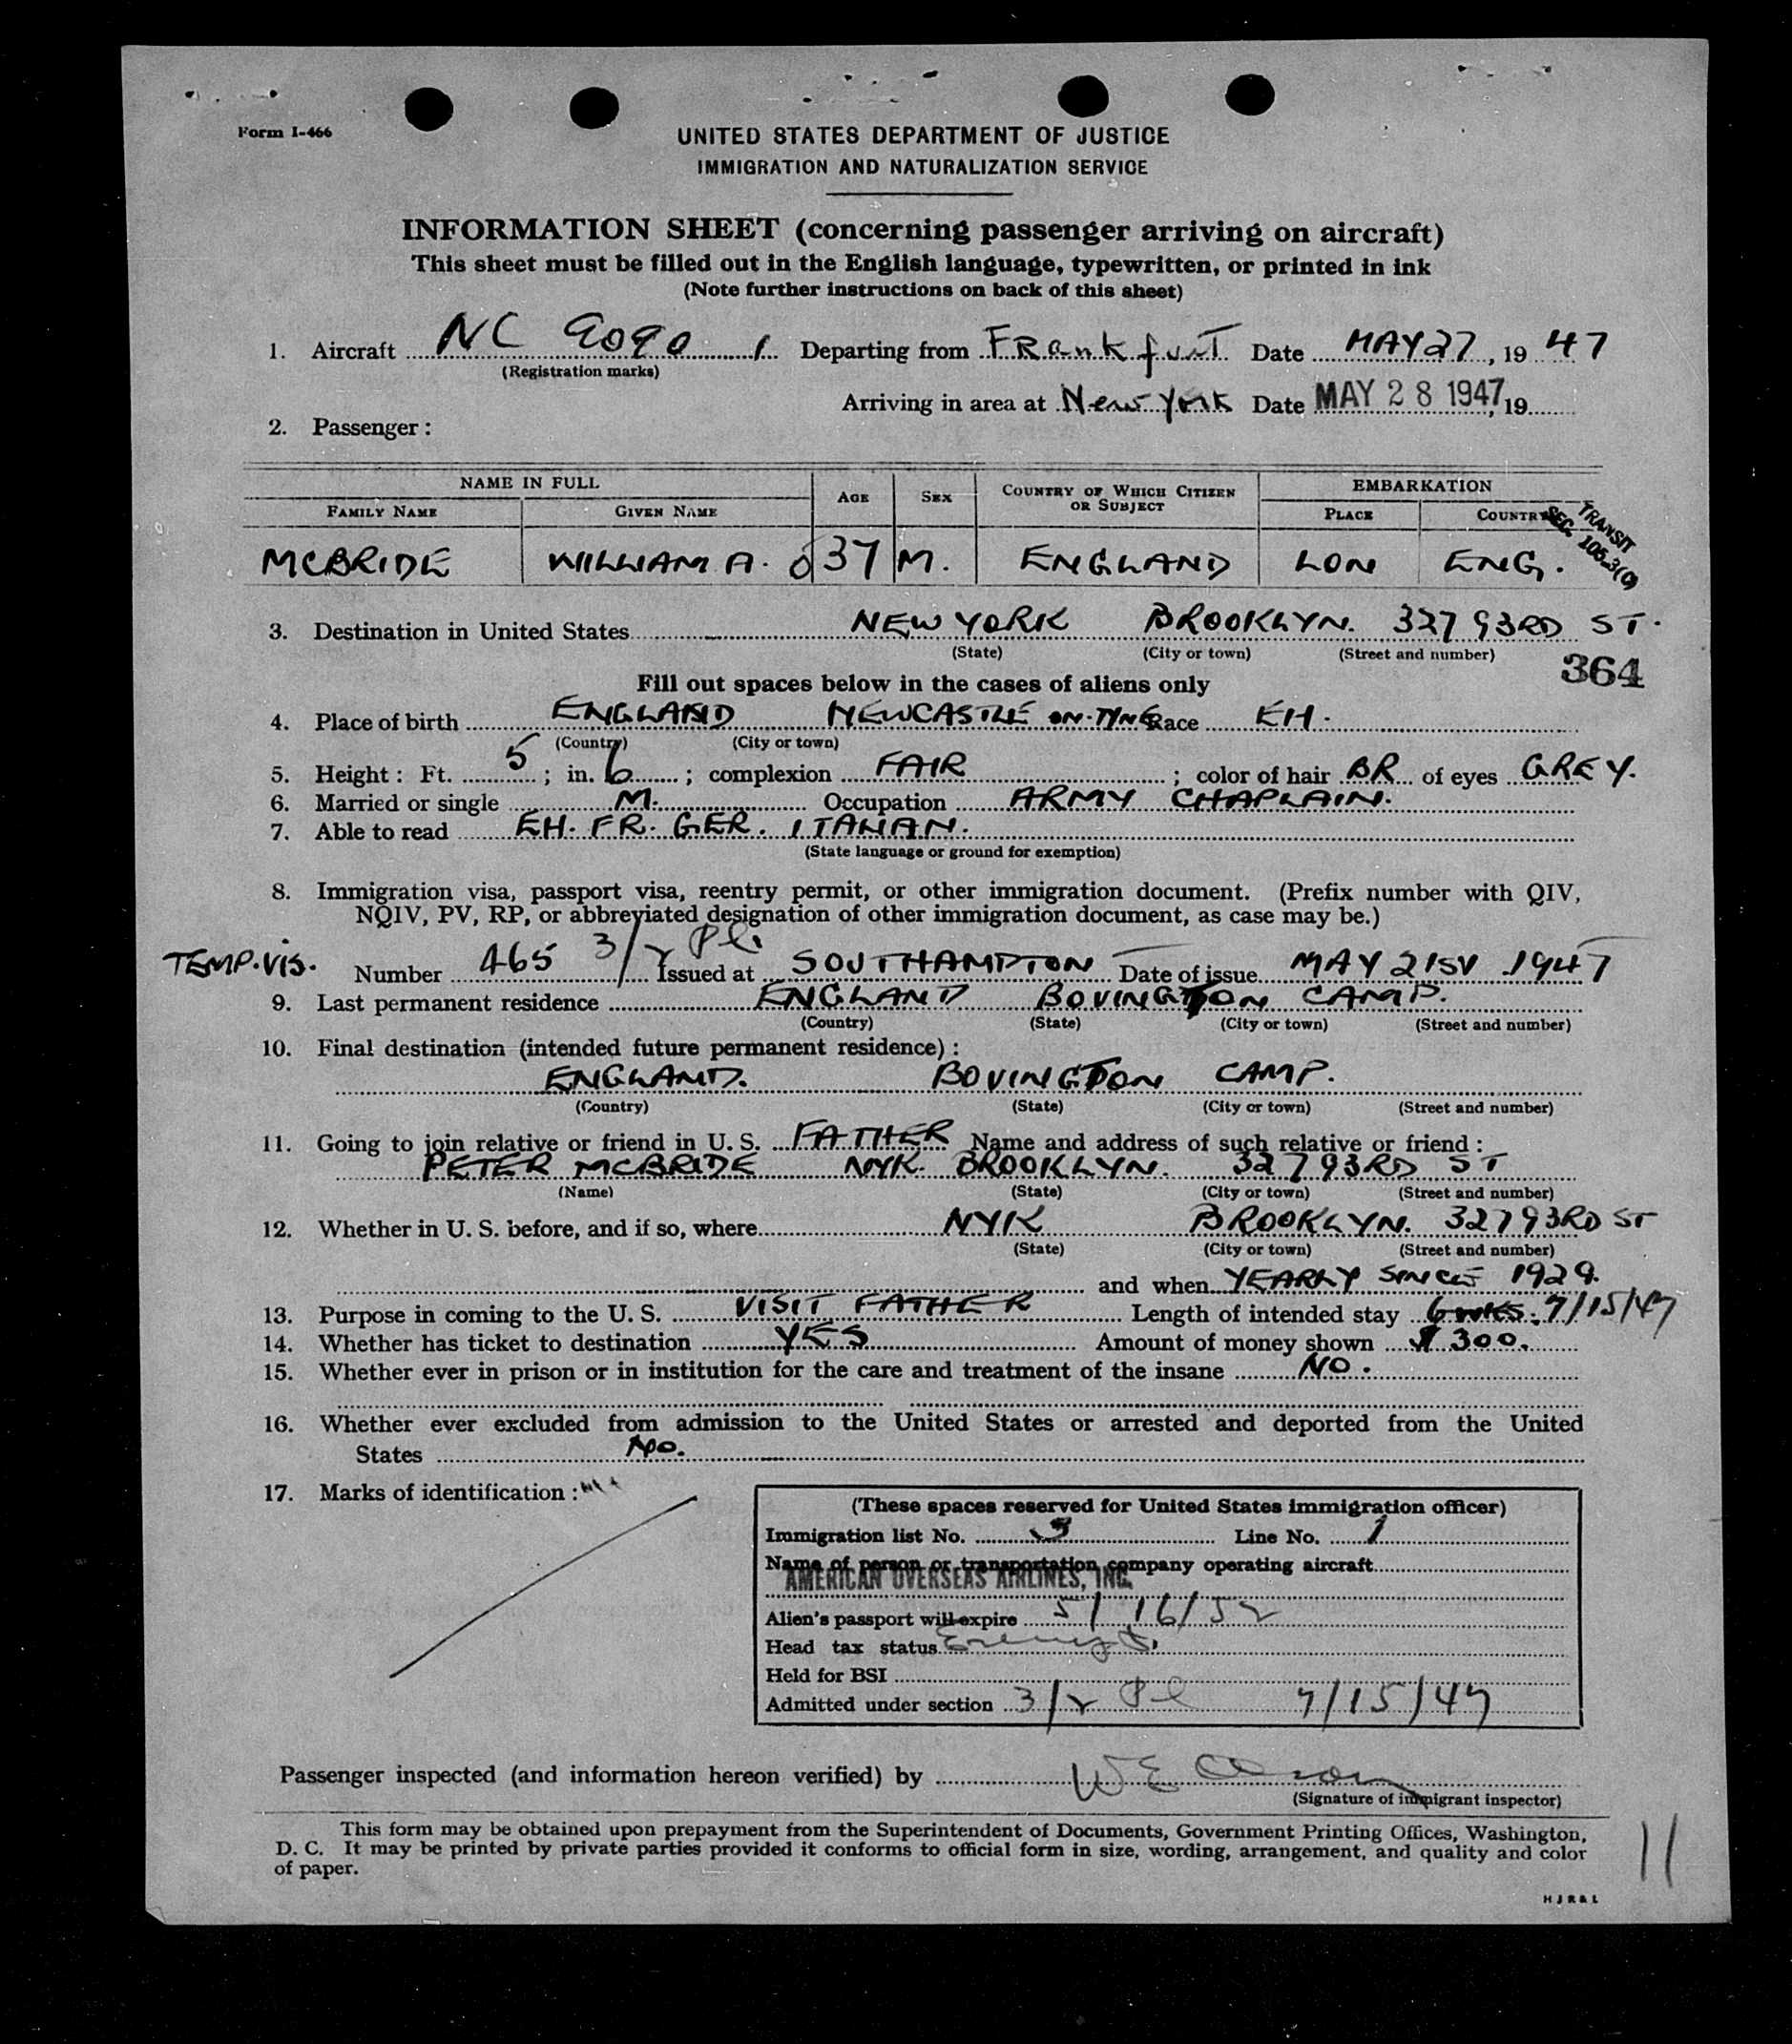 Form I-466
UNITED STATES DEPARTMENT OF JUSTICE
IMMIGRATION AND NATURALIZATION SERVICE
INFORMATION SHEET (concerning passenger arriving on aircraft)
This sheet must be filled out in the English language, typewritten, or printed in ink
(Note further instructions on back of this sheet)
1. Aircraft NC 9090 1 Departing from FRankfurT Date MAY 27, 19 47
(Registration marks)
Arriving in area at New York Date MAY 28 1947, 19
2. Passenger:
NAME IN FULL AGE SEX COUNTRY OF WHICH CITIZEN OR SUBJECT EMBARKATION
FAMILY NAME GIVEN NAME PLACE COUNTRY
TRANSIT
SEC. 105.3(c)
MCBRIDE WILLIAM A. 37 M. ENGLAND LON ENG.
3. Destination in United States NEW YORK BROOKLYN. 327 93RD ST.
(State) (City or town) (Street and number)
364
Fill out spaces below in the cases of aliens only
4. Place of birth ENGLAND NEWCASTLE ON-TYNE Race EH.
(Country) (City or town)
5. Height: Ft. 5; in. 6; complexion FAIR; color of hair BR of eyes GREY.
6. Married or single M. Occupation ARMY CHAPLAIN.
7. Able to read EH. FR. GER. ITALIAN.
(State language or ground for exemption)
8. Immigration visa, passport visa, reentry permit, or other immigration document. (Prefix number with QIV,
NQIV, PV, RP, or abbreviated designation of other immigration document, as case may be.)
TEMP. VIS. Number 465 3/2 Pl. Issued at SOUTHAMPTON Date of issue MAY 21ST 1947
9. Last permanent residence ENGLAND BOVINGTON CAMP.
(Country) (State) (City or town) (Street and number)
10. Final destination (intended future permanent residence):
ENGLAND. BOVINGTON CAMP.
(Country) (State) (City or town) (Street and number)
11. Going to join relative or friend in U. S. FATHER Name and address of such relative or friend:
PETER MCBRIDE NYK. BROOKLYN. 327 93RD ST
(Name) (State) (City or town) (Street and number)
12. Whether in U. S. before, and if so, where NYK BROOKLYN. 327 93RD ST
(State) (City or town) (Street and number)
and when YEARLY SINCE 1929.
13. Purpose in coming to the U. S. VISIT FATHER Length of intended stay 6 WKS. 7/15/47
14. Whether has ticket to destination YES Amount of money shown $ 300.
15. Whether ever in prison or in institution for the care and treatment of the insane NO.
16. Whether ever excluded from admission to the United States or arrested and deported from the United
States NO.
17. Marks of identification:
(These spaces reserved for United States immigration officer)
Immigration list No. 3 Line No. 1
Name of person or transportation company operating aircraft
AMERICAN OVERSEAS AIRLINES, INC.
Alien's passport will expire 5/16/52
Head tax status Exempt.
Held for BSI
Admitted under section 3/2 Pl 7/15/47
Passenger inspected (and information hereon verified) by W E
(Signature of immigrant inspector)
This form may be obtained upon prepayment from the Superintendent of Documents, Government Printing Offices, Washington,
D. C. It may be printed by private parties provided it conforms to official form in size, wording, arrangement, and quality and color
of paper.
11
H J R & L